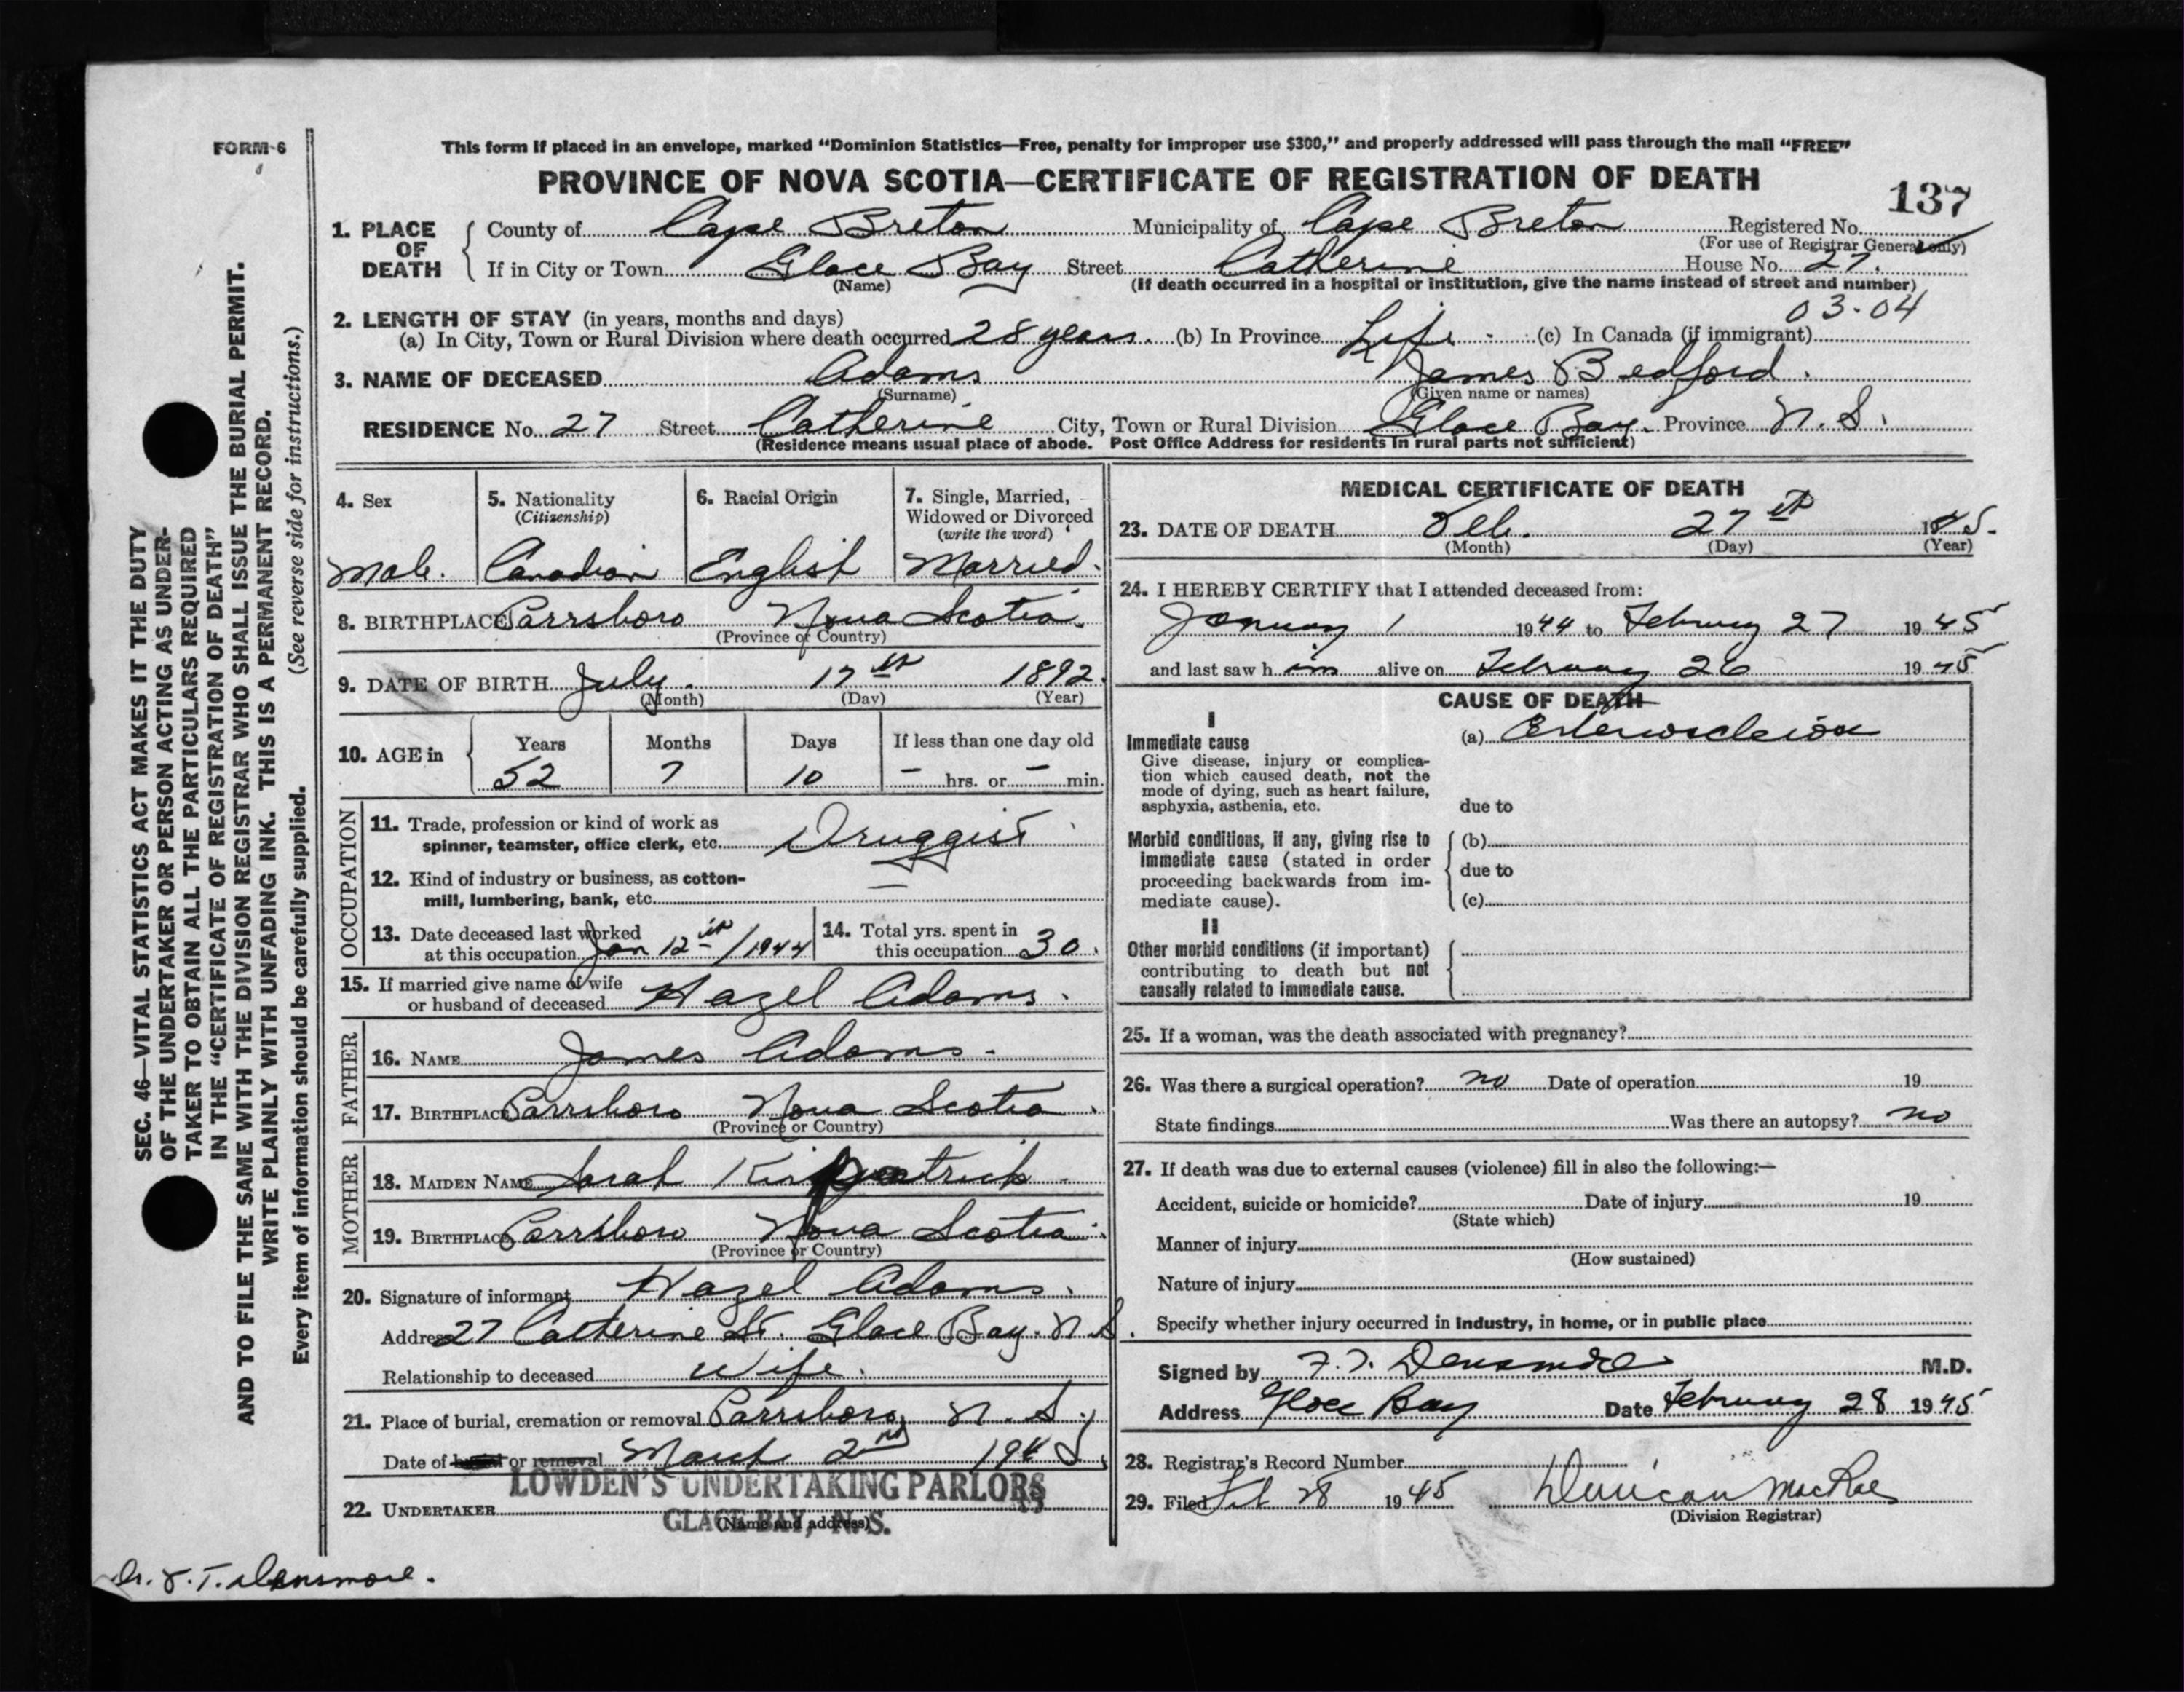 FORM 6
This form if placed in an envelope, marked “Dominion Statistics—Free, penalty for improper use $300,” and properly addressed will pass through the mail “FREE”
PROVINCE OF NOVA SCOTIA—CERTIFICATE OF REGISTRATION OF DEATH
137
1. PLACE OF DEATH
County of Cape Breton Municipality of Cape Breton Registered No.
(For use of Registrar General only)
If in City or Town Glace Bay Street Catherine House No. 27.
(Name) (If death occurred in a hospital or institution, give the name instead of street and number)
03-04
2. LENGTH OF STAY (in years, months and days)
(a) In City, Town or Rural Division where death occurred 28 years. (b) In Province Life - (c) In Canada (if immigrant)
3. NAME OF DECEASED Adams James Bedford.
(Surname) (Given name or names)
RESIDENCE No. 27 Street Catherine City, Town or Rural Division Glace Bay. Province N. S.
(Residence means usual place of abode. Post Office Address for residents in rural parts not sufficient)
4. Sex
Male.
5. Nationality
(Citizenship)
Canadian
6. Racial Origin
English
7. Single, Married,
Widowed or Divorced
(write the word)
Married.
8. BIRTHPLACE Parrsboro Nova Scotia.
(Province or Country)
9. DATE OF BIRTH July. 17th 1892.
(Month) (Day) (Year)
10. AGE in
Years Months Days If less than one day old
52 7 10 — hrs. or — min.
OCCUPATION
11. Trade, profession or kind of work as
spinner, teamster, office clerk, etc. Druggist
12. Kind of industry or business, as cotton-
mill, lumbering, bank, etc. —
13. Date deceased last worked
at this occupation Jan 12th/1944
14. Total yrs. spent in
this occupation 30.
15. If married give name of wife
or husband of deceased Hazel Adams.
FATHER
16. NAME James Adams.
17. BIRTHPLACE Parrsboro Nova Scotia.
(Province or Country)
MOTHER
18. MAIDEN NAME Sarah Kirkpatrick.
19. BIRTHPLACE Parrsboro Nova Scotia.
(Province or Country)
20. Signature of informant Hazel Adams.
Address 27 Catherine St. Glace Bay. N S.
Relationship to deceased Wife.
21. Place of burial, cremation or removal Parrsboro, N. S.
Date of burial or removal March 2nd 1945
22. UNDERTAKER
LOWDEN'S UNDERTAKING PARLORS
GLACE BAY, N. S.
(Name and address)
MEDICAL CERTIFICATE OF DEATH
23. DATE OF DEATH Feb. 27th 1945.
(Month) (Day) (Year)
24. I HEREBY CERTIFY that I attended deceased from:
January 1 1944 to February 27 1945
and last saw him alive on February 26 1945
CAUSE OF DEATH
I
Immediate cause
Give disease, injury or complica-
tion which caused death, not the
mode of dying, such as heart failure,
asphyxia, asthenia, etc.
(a)
due to
Morbid conditions, if any, giving rise to
immediate cause (stated in order
proceeding backwards from im-
mediate cause).
(b)
due to
(c)
II
Other morbid conditions (if important)
contributing to death but not
causally related to immediate cause.
25. If a woman, was the death associated with pregnancy?
26. Was there a surgical operation? no Date of operation 19
State findings Was there an autopsy? no
27. If death was due to external causes (violence) fill in also the following:—
Accident, suicide or homicide? Date of injury 19
(State which)
Manner of injury
(How sustained)
Nature of injury
Specify whether injury occurred in industry, in home, or in public place
Signed by F. T. Densmore M.D.
Address Glace Bay Date February 28 1945
28. Registrar's Record Number
29. Filed Feb 28 1945 Duncan MacRae
(Division Registrar)
Dr. F. T. Densmore.
SEC. 46—VITAL STATISTICS ACT MAKES IT THE DUTY
OF THE UNDERTAKER OR PERSON ACTING AS UNDER-
TAKER TO OBTAIN ALL THE PARTICULARS REQUIRED
IN THE “CERTIFICATE OF REGISTRATION OF DEATH”
AND TO FILE THE SAME WITH THE DIVISION REGISTRAR WHO SHALL ISSUE THE BURIAL PERMIT.
WRITE PLAINLY WITH UNFADING INK. THIS IS A PERMANENT RECORD.
Every item of information should be carefully supplied. (See reverse side for instructions.)